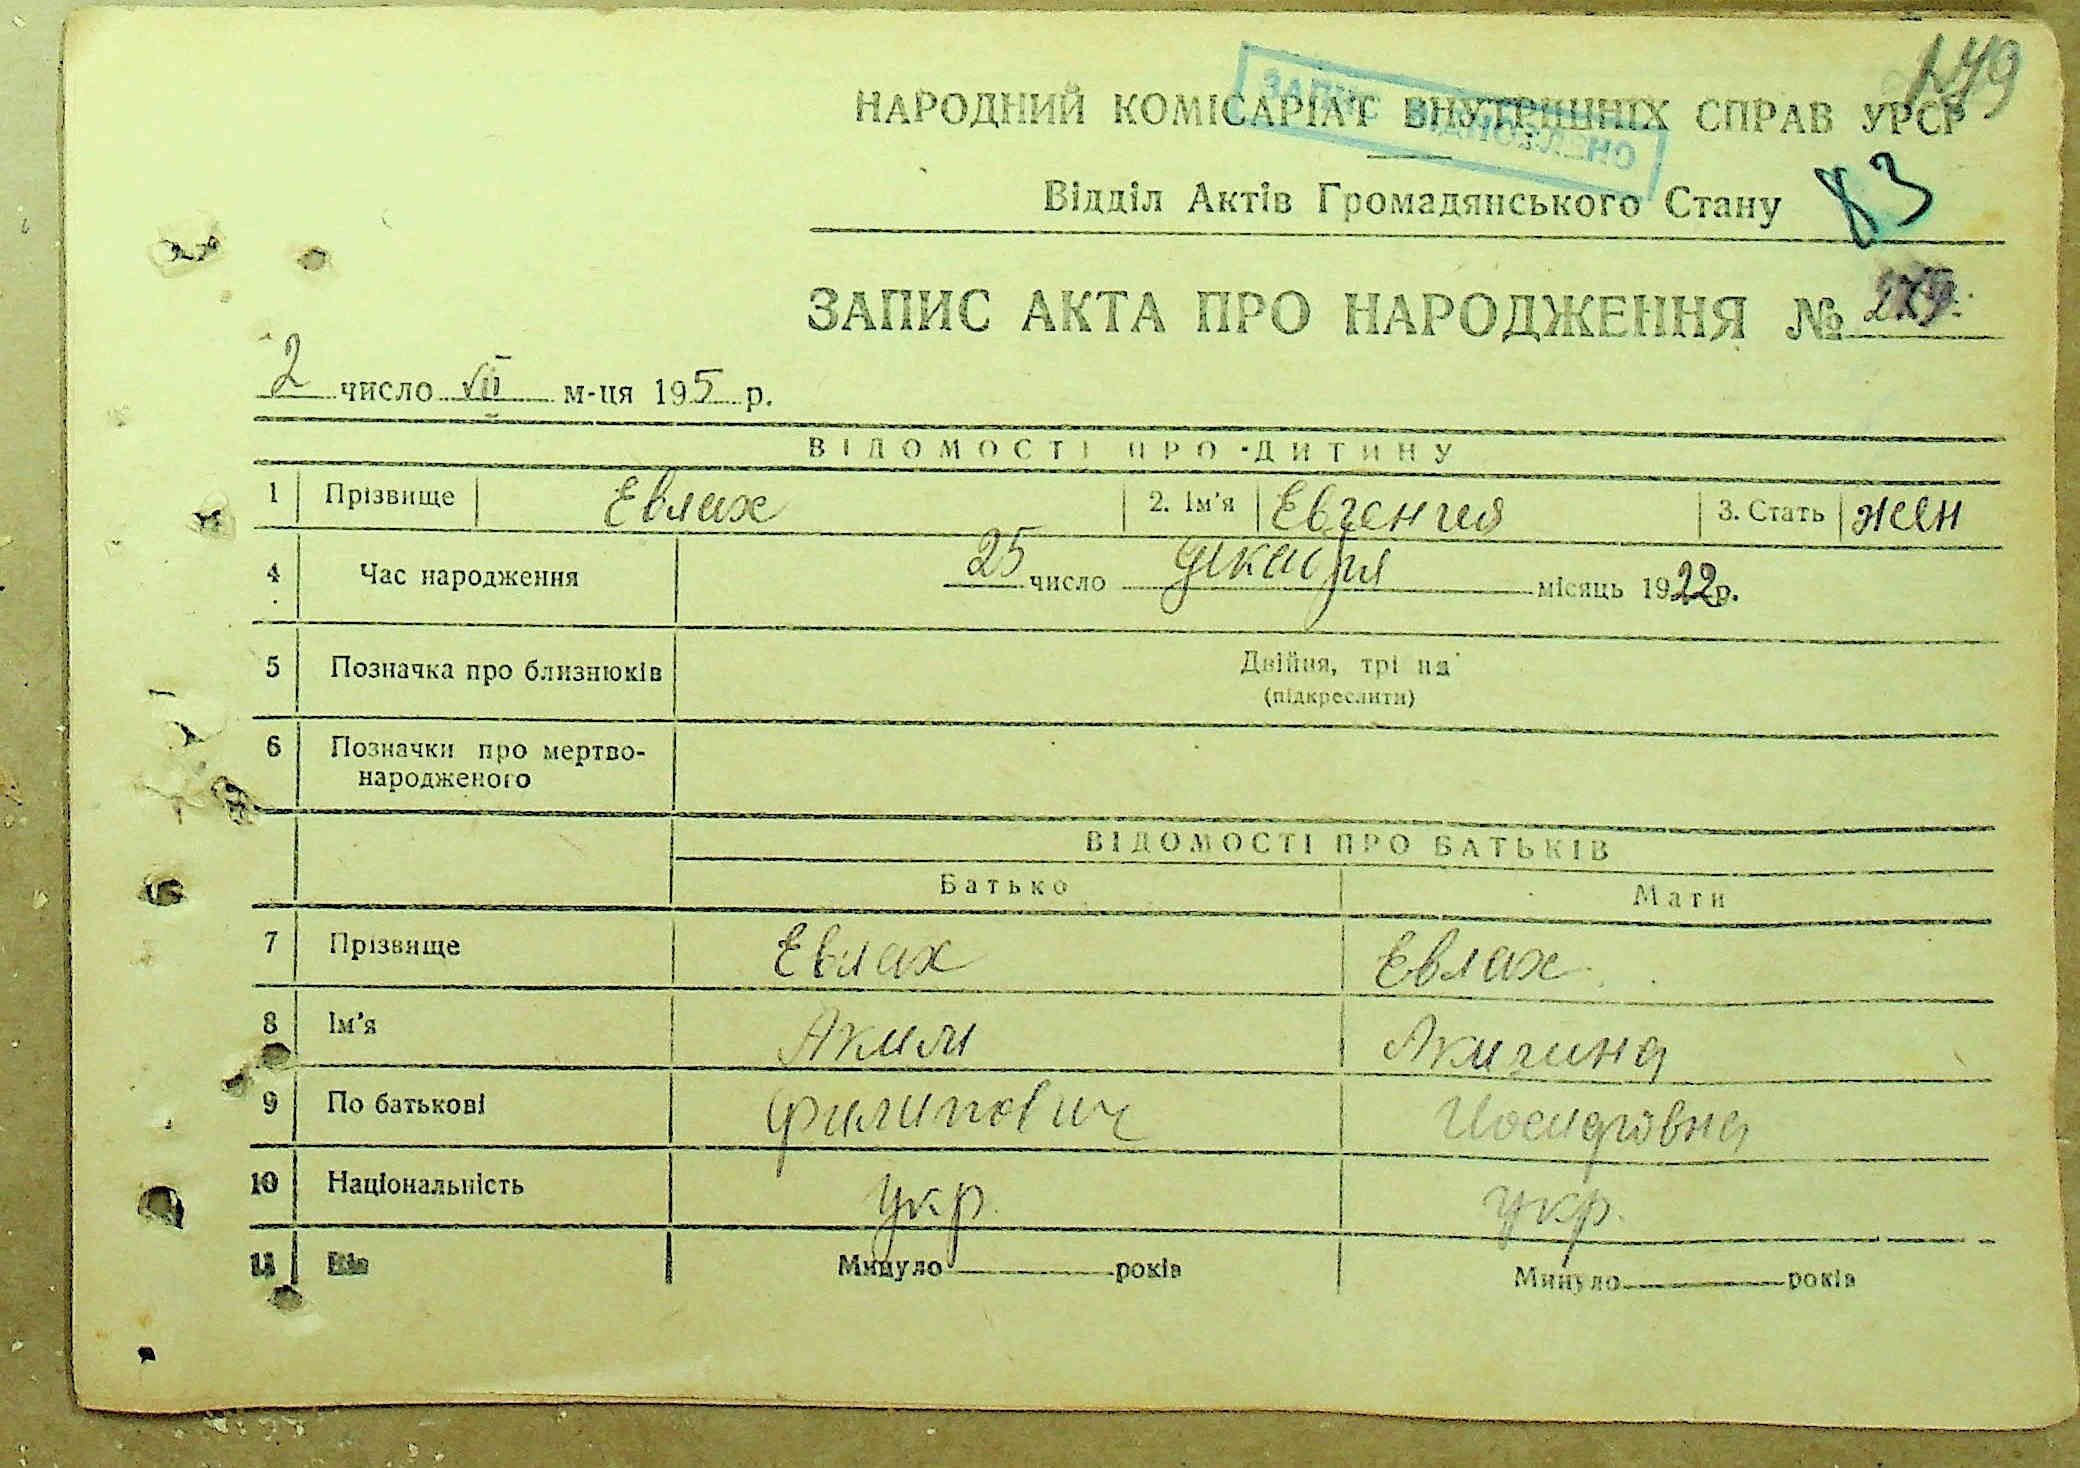 НАРОДНИЙ КОМІСАРІАТ ВНУТРІШНІХ СПРАВ УРСР
Відділ Актів Громадянського Стану 83
ЗАПИС АКТА ПРО НАРОДЖЕННЯ № 279
2 число VII м-ця 195 р.
ВІДОМОСТІ ПРО ДИТИНУ
1 Прізвище Евлах 2. Ім'я Евгения 3. Стать жен
4 Час народження 25 число декабря місяць 1922р.
5 Позначка про близнюків Двійня, трі на
(підкреслити)
6 Позначки про мертво-
народженого
ВІДОМОСТІ ПРО БАТЬКІВ
Батько Мати
7 Прізвище Евлах Евлах
8 Ім'я Аким Акилина
9 По батькові Филипович Иосифовна
10 Національність укр. укр.
11 Вік Минуло років Минуло років